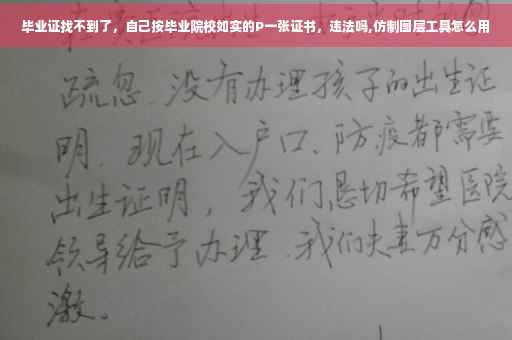 毕业证找不到了，自己按毕业院校如实的P一张证书，违法吗,仿制图层工具怎么用
疏忽、没有办理孩子的出生证
明、现在入户口、防疫都需要
出生证明，我们恳切希望医院
领导给予办理、我们夫妻万分感
激。